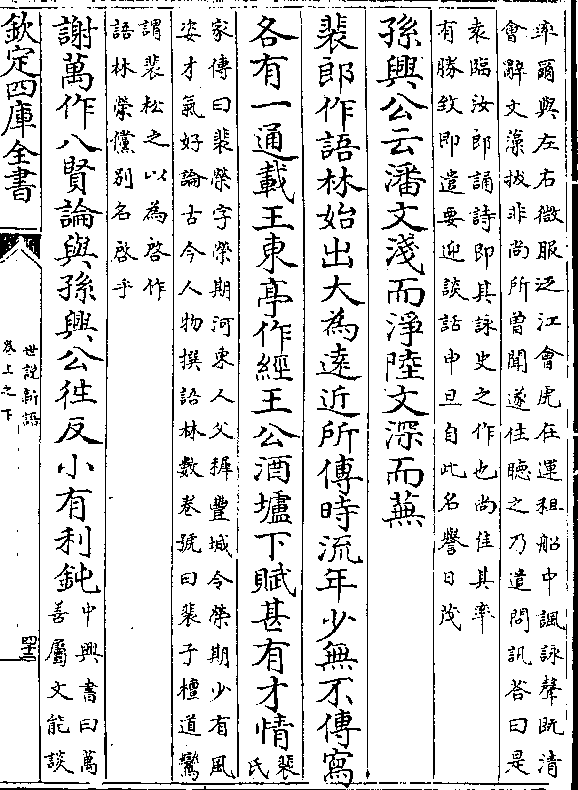 率爾與左右微服泛江會虎在運租船中諷詠聲既清
會辭文藻拔非尚所曾聞遂住聽之乃遣問訊答曰是
袁臨汝郎誦詩即其詠史之作也尚佳其率
有勝致即遣要迎談話申旦自此名譽日茂
孫興公云潘文淺而淨陸文深而蕪
裴郎作語林始出大為遠近所傳時流年少無不傳寫
各有一通載王東亭作經王公酒壚下賦甚有才情
裴
氏
家傳曰裴榮字榮期河東人父穉豐城令榮期少有風
姿才氣好論古今人物撰語林數卷號曰裴子檀道鸞
謂裴松之以為啓作
語林榮儻别名啓乎
謝萬作八賢論與孫興公往反小有利鈍
中興書曰萬
善屬文能談
欽定四庫全書
世説新語
卷上之下